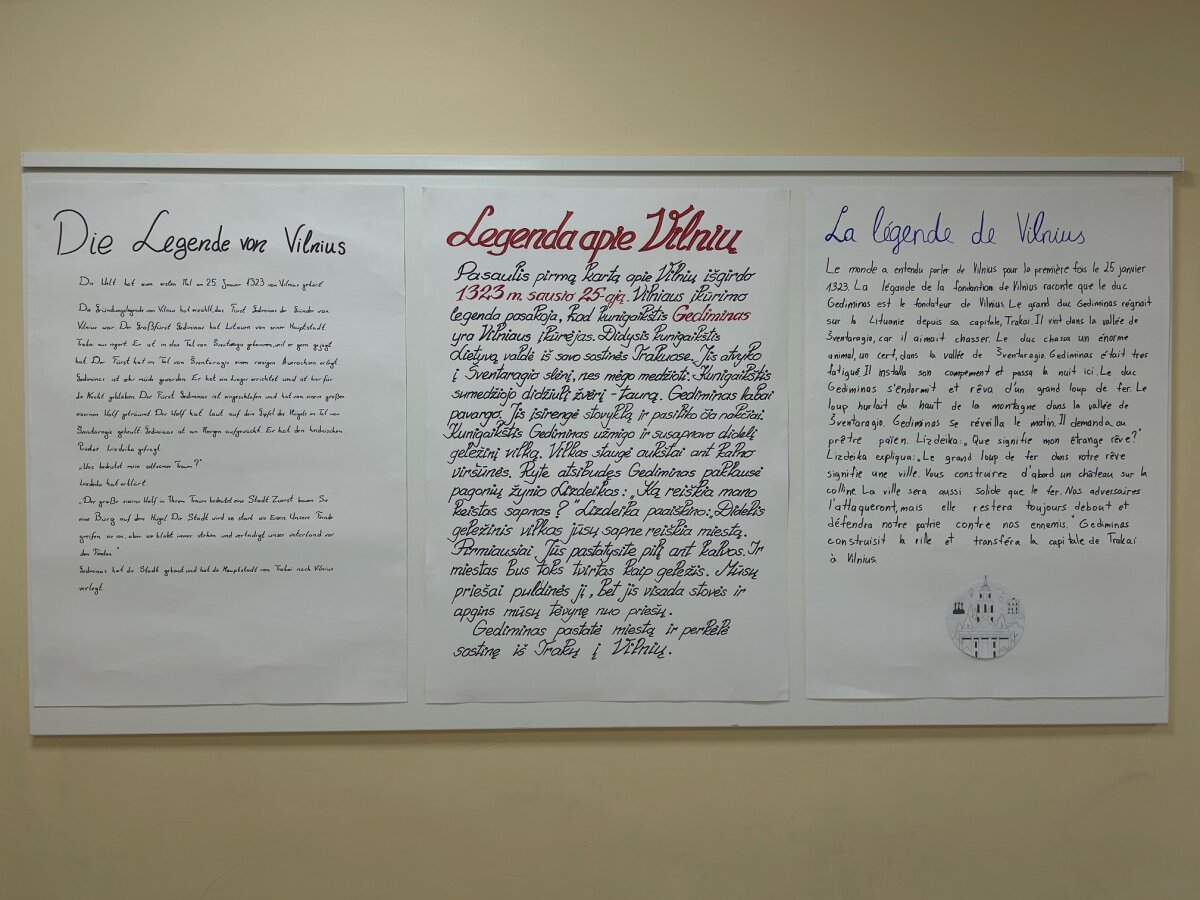 Die Legende von Vilnius
Die Welt hat zum ersten Mal am 25 Januar 1323 von Vilnius gehört
Die Gründungslegende von Vilnius hat erzählt, das Fürst Gediminas der Gründer von
Vilnius war. Der Großfürst Gediminas hat Litauen von seiner Hauptstadt
Trakai aus regiert. Er ist in das Tal von Šventaragis gekommen, weil er gern gejagt
hat. Der Fürst hat im Tal von Šventaragis einen riesigen Auerochsen erlegt.
Gediminas ist sehr müde geworden. Er hat ein Lager errichtet und ist hier für
die Nacht geblieben. Der Fürst Gediminas ist eingeschlafen und hat von einem großen
eisernen Wolf geträumt. Der Wolf hat laut auf dem Gipfel des Hügels im Tal von
Šventaragis geheult. Gediminas ist am Morgen aufgewacht. Er hat den heidnischen
Priester Lizdeika gefragt:
„Was bedeutet mein seltsamer Traum?"
Lizdeika hat erklärt:
„Der große eiserne Wolf in Ihrem Traum bedeutet eine Stadt. Zuerst bauen Sie
eine Burg auf dem Hügel. Die Stadt wird so stark wie Eisen. Unsere Feinde
greifen sie an, aber sie bleibt immer stehen und verteidigt unser Vaterland vor
den Feinden."
Gediminas hat die Stadt gebaut und hat die Hauptstadt von Trakai nach Vilnius
verlegt.
Legenda apie Vilnių
Pasaulis pirmą kartą apie Vilnių išgirdo
1323 m. sausio 25-ąją. Vilniaus įkūrimo
legenda pasakoja, kad kunigaikštis Gediminas
yra Vilniaus įkūrėjas. Didysis kunigaikštis
Lietuvą valdė iš savo sostinės Trakuose. Jis atvyko
į Šventaragio slėnį, nes mėgo medžioti. Kunigaikštis
sumedžiojo didžiulį žvėrį - taurą. Gediminas labai
pavargo. Jis įsirengė stovyklą ir pasiliko čia nakčiai.
Kunigaikštis Gediminas užmigo ir susapnavo didelį
geležinį vilką. Vilkas staugė aukštai ant kalno
viršūnės. Ryte atsibudęs Gediminas paklausė
pagonių žynio Lizdeikos: „Ką reiškia mano
keistas sapnas?" Lizdeika paaiškino: „Didelis
geležinis vilkas jūsų sapne reiškia miestą.
Pirmiausiai Jūs pastatysite pilį ant kalvos. Ir
miestas bus toks tvirtas kaip geležis. Mūsų
priešai puldinės jį, bet jis visada stovės ir
apgins mūsų tėvynę nuo priešų.
Gediminas pastatė miestą ir perkėlė
sostinę iš Trakų į Vilnių.
La légende de Vilnius
Le monde a entendu parler de Vilnius pour la première fois le 25 janvier
1323. La légande de la fondantion de Vilnius raconte que le duc
Gediminas est le fondateur de Vilnius. Le grand duc Gediminas régnait
sur la Lituanie depuis sa capitale, Trakai. Il vint dans la vallée de
Šventaragio, car il aimait chasser. Le duc chassa un énorme
animal, un cert, dans la vallée de Šventaragio. Gediminas était tres
fatigué. Il installa son campement et passa la nuit ici. Le duc
Gediminas s'endormit et rêva d'un grand loup de fer. Le
loup hurlait du haut de la montagne dans la vallée de
Šventaragio. Gediminas se réveilla le matin. Il demanda au
prêtre païen. Lizdeika: „Que signifie mon étrange rêve?"
Lizdeika expliqua: „Le grand loup de fer dans votre rêve
signifie une ville. Vous construirez d'abord un château sur la
colline. La ville sera aussi solide que le fer. Nos adversaires
l'attaqueront, mais elle restera toujours debout et
défendra notre patrie contre nos ennemis." Gediminas
construisit la ville et transféra la capitale de Trakai
à Vilnius.